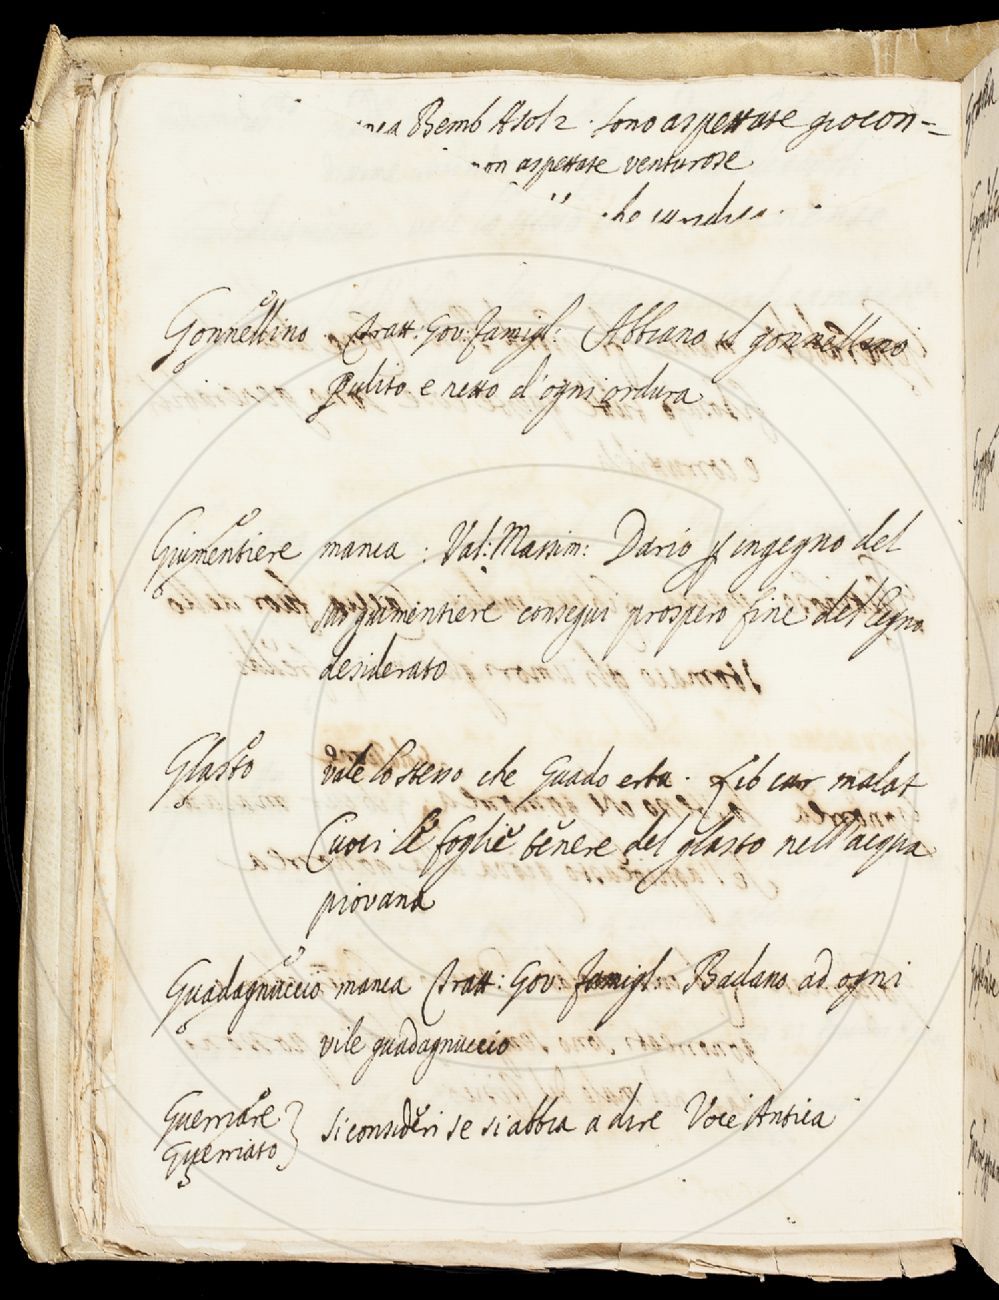 Bemb Asol 2. sono aspettate giocon=
non aspettate venturose
Gonnellino Tratt: Gov: Famigl: Abbiano il gonnellino
pulito e netto d'ogni ordura
Guimentiere manca : Val: Massim: Dario p ingegno del
suo guimentiere consegui prospero fine del Regno
desiderato
Glasto vale lo steso che Guado erba. Lib cur malat
Cuoci le foglie tenere del glasto nell'acqua
piovana
Guadagnuccio manca Tratt: Gov: Famigl: Badano ad ogni
vile guadagnuccio
Guerriare
Guerriato } si consideri se si abbia a dire Voce Antica